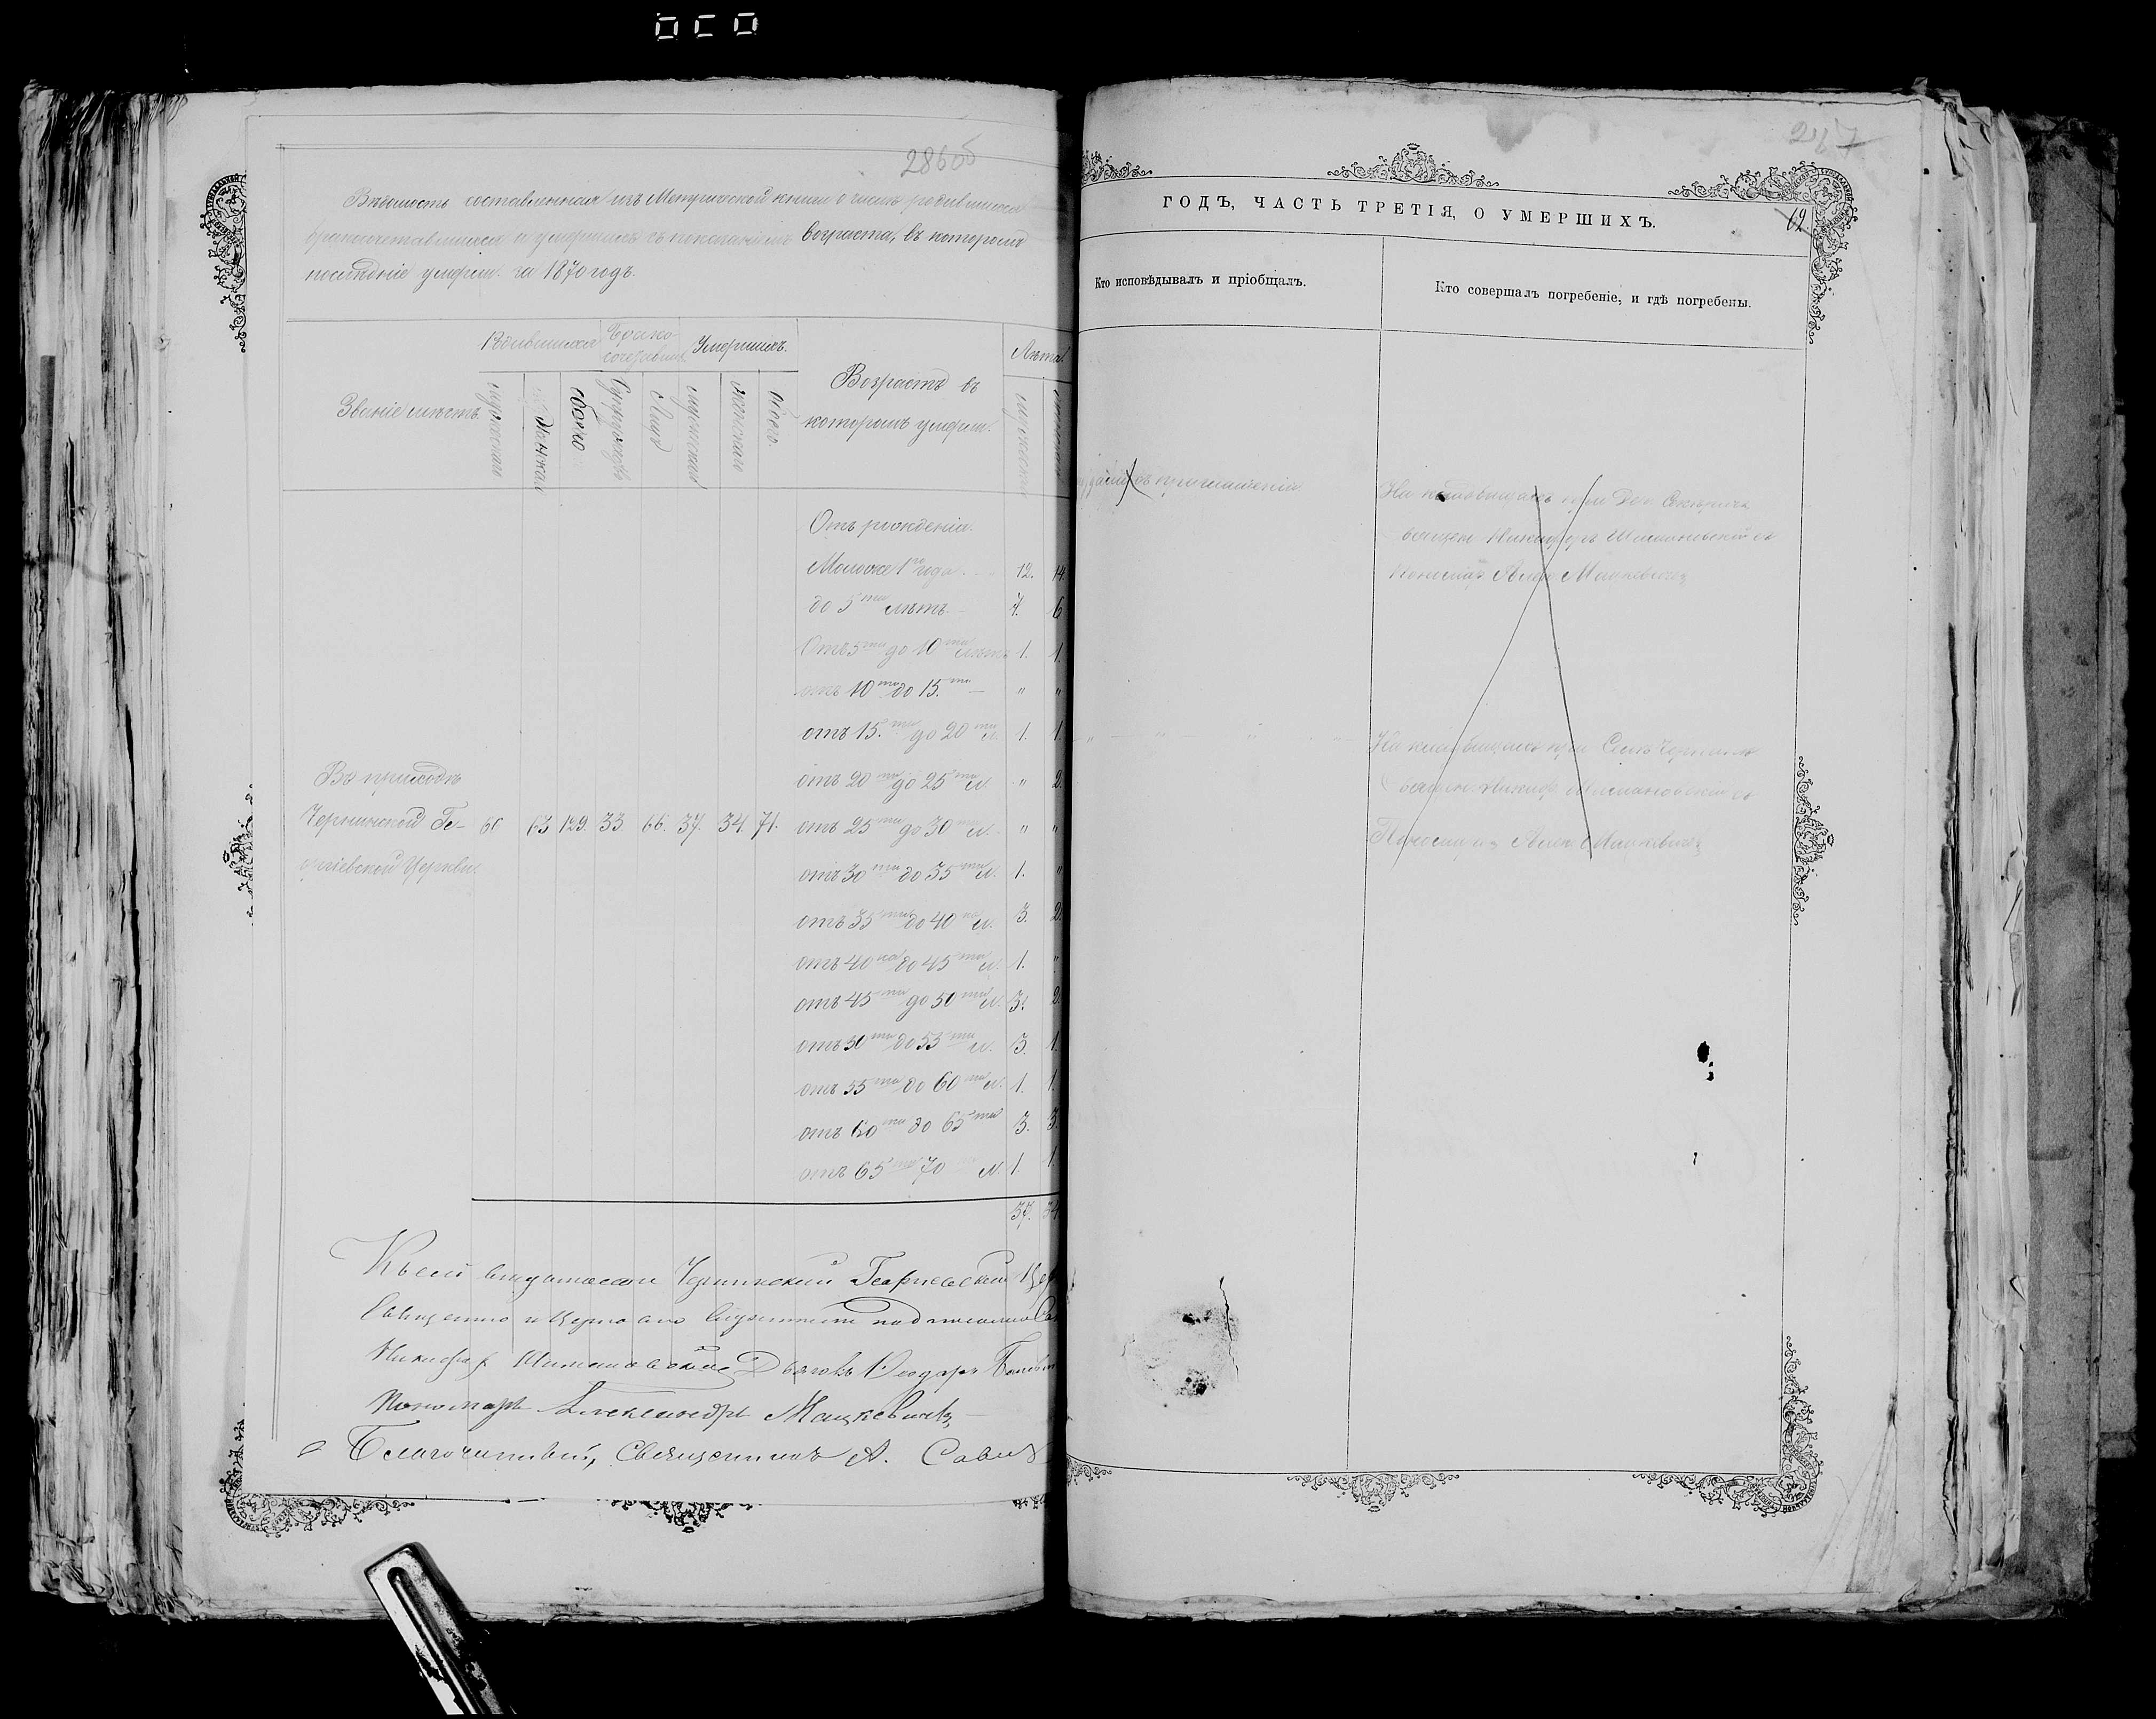 286об
Вѣдомость составленная изъ Метрической книги о числѣ родившихся
бракосочетавшихся и умершихъ съ показаніемъ возраста, въ которомъ
послѣдніе умерли за 1870 годъ.
Званіе мѣстъ. Родившихся Брако-сочетавших Умершихъ. Возрастъ въ которомъ умерли. Лѣта
мужескаго женска обоего Супружествъ Лицъ мужескаго женскаго обоего
Отъ рожденія.
Моложе 1го года. 12. 14.
до 5ти лѣтъ 7. 6
Отъ 5ти до 10ти лѣтъ 1. 1.
отъ 10ти до 15.ти — " "
отъ 15.ти до 20ти л. 1. 1.
Въ приходѣ отъ 20ти до 25ти л. " 2
Чернинской Ге- 66 63 129. 33. 66. 37. 34. 71. отъ 25ти до 30ти л. " "
оргіевской Церкви. отъ 30ти до 35ти л. 1. "
отъ 35ти до 40ка л. 3. 2.
отъ 40ка до 45ти л. 1. "
отъ 45ти до 50ти л. 3. 2.
отъ 50ти до 55ти л. 3. 1.
отъ 55ти до 60ти л. 1. 1.
отъ 60ти до 65ти 3. 3.
отъ 65ти 70 л 1. 1.
37. 34
Къ сей Чернинской Георгіевской
Священно и Церковно
Никифоръ Шимановскій Дьячекъ Ѳеодоръ
Пономарь Александръ Мацкевичъ
Благочинный, Священникъ А. Савич
247
ГОДЪ, ЧАСТЬ ТРЕТІЯ, О УМЕРШИХЪ.
62
Кто исповѣдывалъ и пріобщалъ.
Кто совершалъ погребеніе, и гдѣ погребены.
приглашенія
На кладбищахъ при
Никифоръ Шимановскій съ
Пономар Алек Мацкевичъ
На кладбищахъ при Селѣ
Священ. Никиф Шимановскій съ
Пономар Алек Мацкевичъ